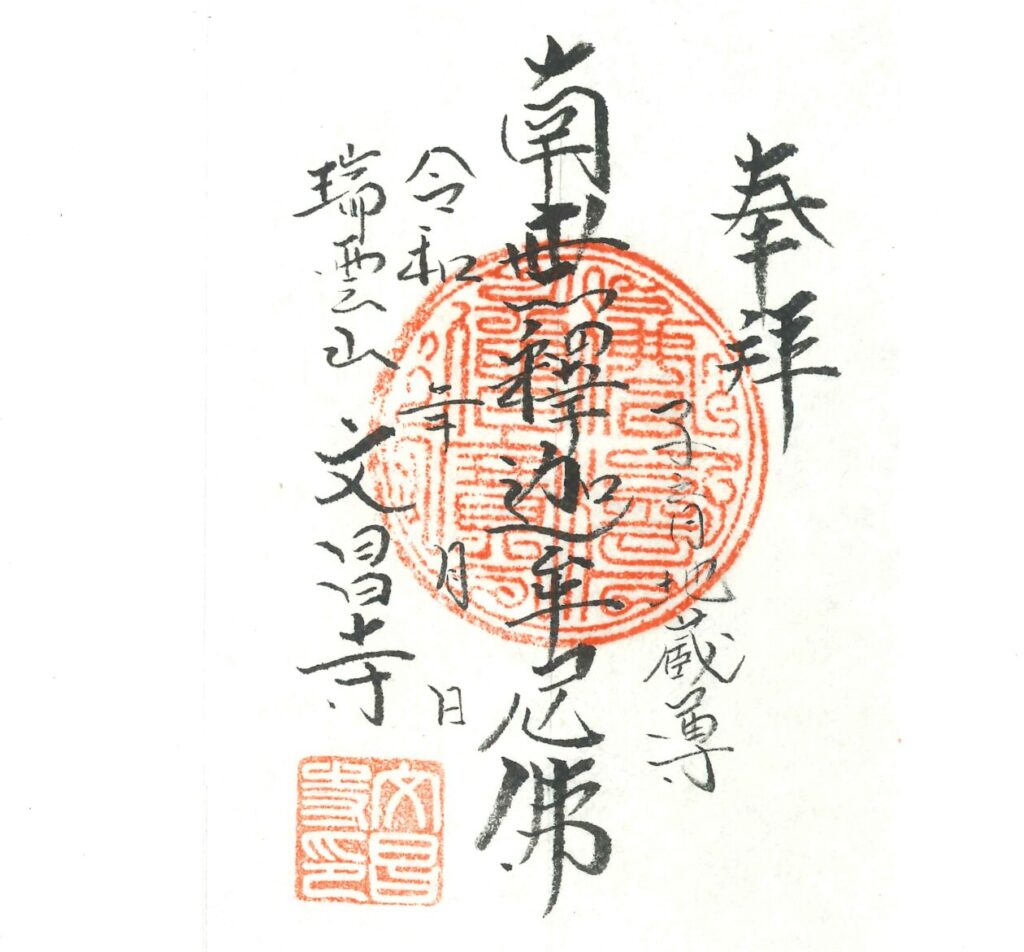 奉拝
子育地蔵尊
南無釋迦牟尼佛
令和 年 月 日
瑞雲山 文昌寺
文昌寺印